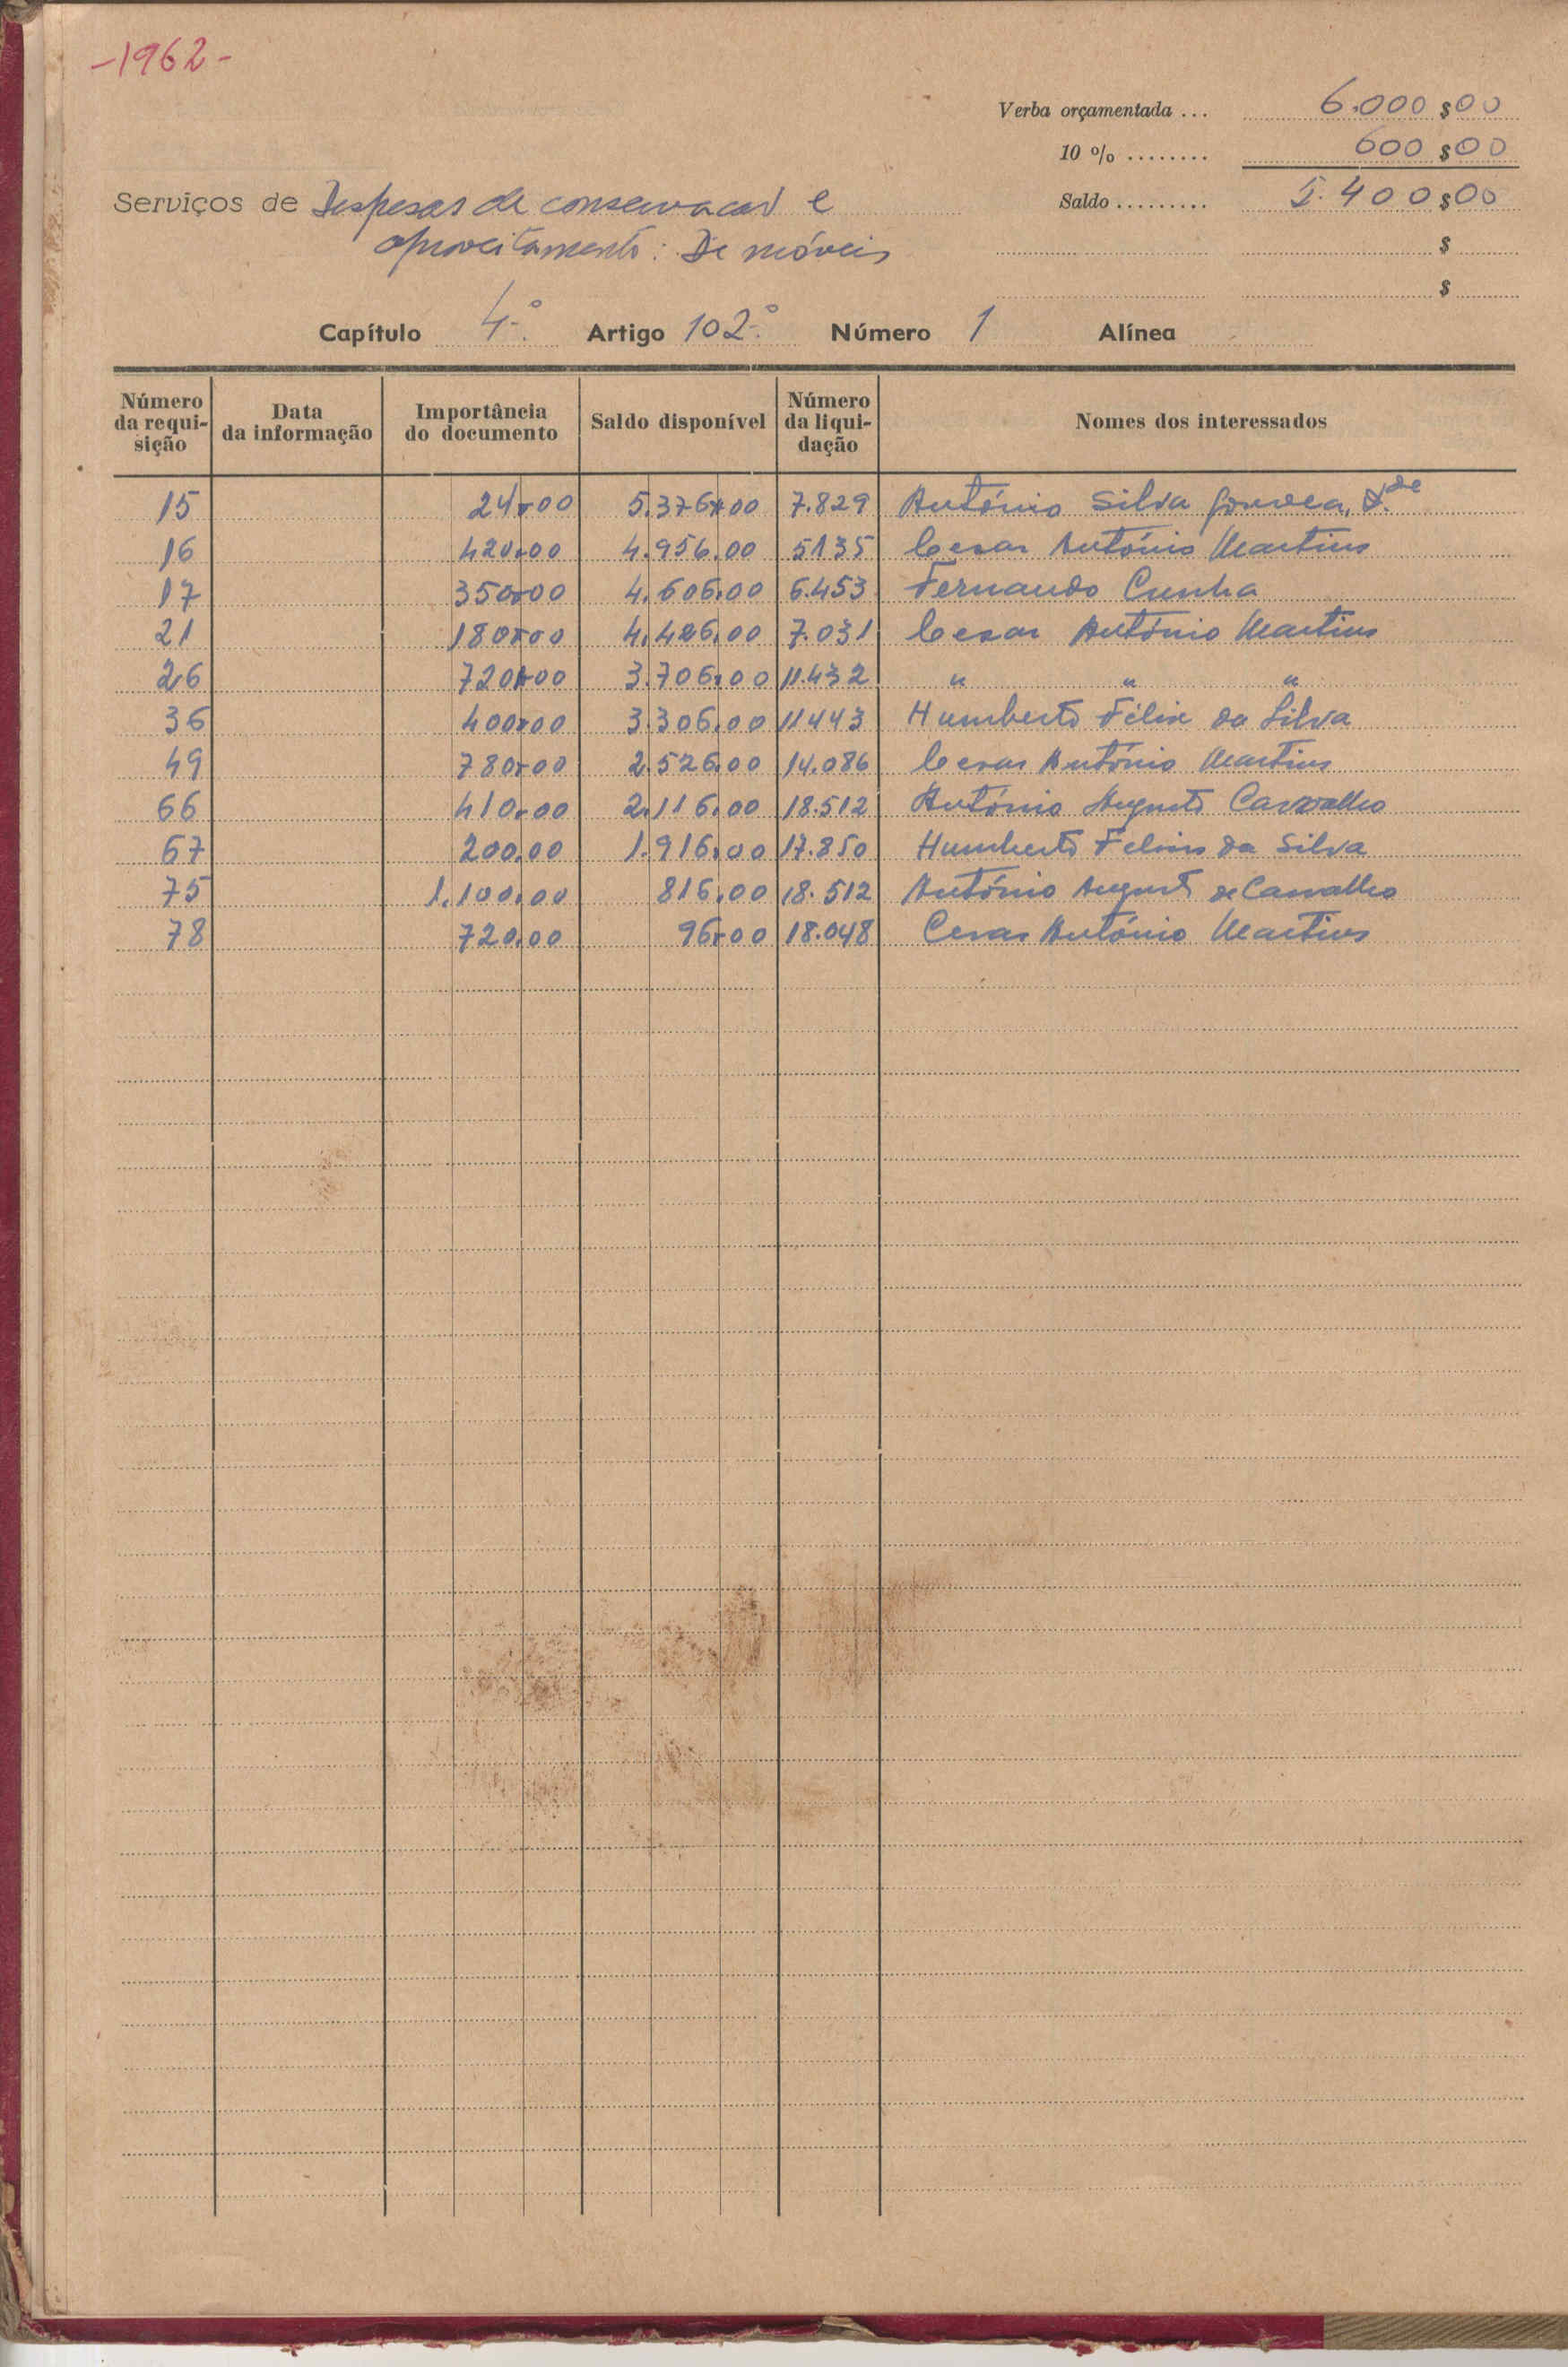 -1962-
Verba orçamentada ... 6.000$00
10 % ........ 600$00
Serviços de Despesas de conservacao e Saldo ......... 5.400$00
aproveitamento: De móveis $
$
Capítulo 4.º Artigo 102.º Número 1 Alínea
Número da requi-sição Data da informação Importância do documento Saldo disponível Número da liqui-dação Nomes dos interessados
15 24,00 5.376,00 7.829 António Silva Gouvea, L.de
16 420,00 4.956,00 5135 Cesar António Martins
17 350,00 4.606,00 6.453 Fernando Cunha
21 180,00 4.426,00 7.031 Cesar António Martins
26 720,00 3.706,00 11.432 " " "
36 400,00 3.306,00 11443 Humberto Félix da Silva
49 780,00 2.526,00 14.086 Cesar António Martins
66 410,00 2.116,00 18.512 António Augusto Carvalho
67 200,00 1.916,00 17.850 Humberto Felix da Silva
75 1.100,00 816,00 18.512 António Augusto de Carvalho
78 720,00 96,00 18.048 Cesar António Martins